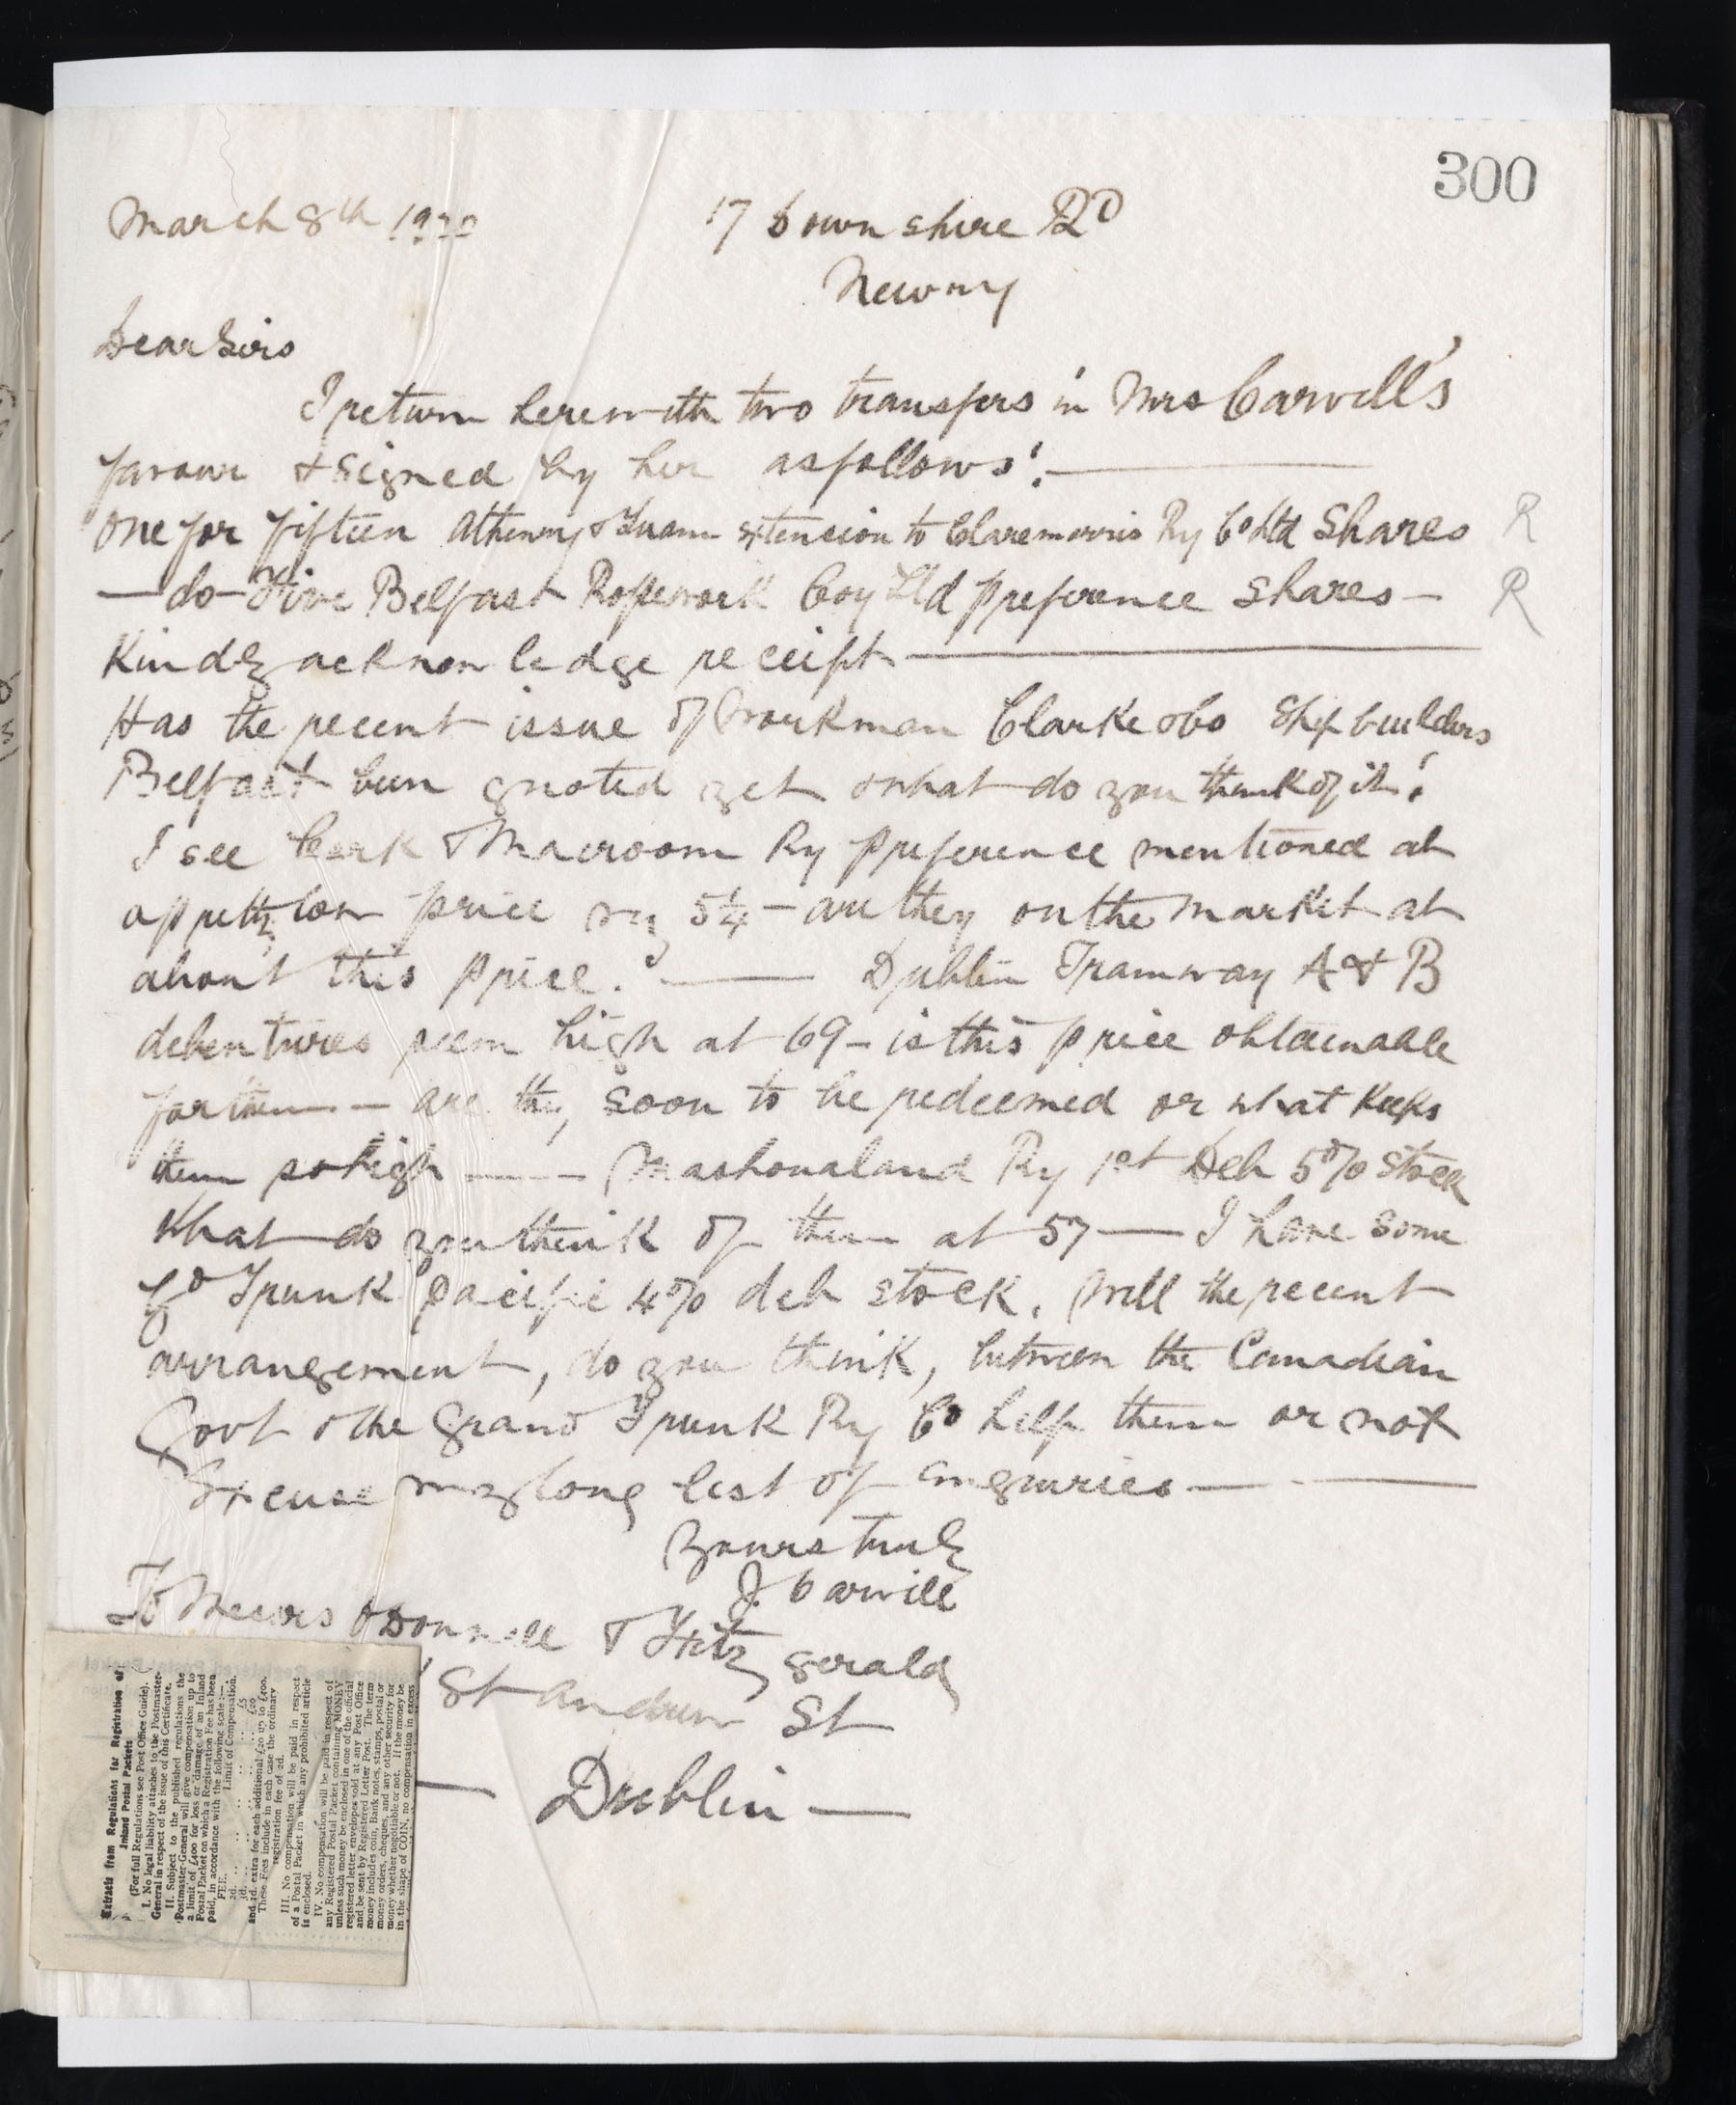 300
March 8th 1920
17 Downshire Rd
Newry
Dear Sirs
I return herewith two transfers in Mrs Carvill's
favour & signed by her as follows:—
One for fifteen Athenry & Tuam extension to Claremorris Ry Co Ltd Shares R
— do — Five Belfast Ropework Coy Ltd preference shares — R
Kindly acknowledge receipt —
Has the recent issue of Workman Clarke & Co Shipbuilders
Belfast been quoted yet & what do you think of it?
I see Cork & Macroom Ry preference mentioned at
a pretty low price viz 5¼ — are they on the market at
about this price? — Dublin Tramway A & B
debentures seem high at 69 — is this price obtainable
for them — are they soon to be redeemed or what keeps
them so high — Mashonaland Ry 1st Deb 5% Stock
What do you think of them at 57 — I have some
Gd Trunk Pacific 4% deb stock. Will the recent
arrangement, do you think, between the Canadian
Govt & the Grand Trunk Ry Co help them or not
Excuse my long list of enquiries —
Yours truly
J. Carvill
To Messrs O'Donnell & Fitzgerald
St Andrew St
— Dublin —
Extracts from Regulations for Registration of
Inland Postal Packets
(For full Regulations see Post Office Guide).
I. No legal liability attaches to the Postmaster-
General in respect of the issue of this Certificate.
II. Subject to the published regulations the
Postmaster-General will give compensation up to
a limit of £400 for loss or damage of an Inland
Postal Packet on which a Registration Fee has been
paid, in accordance with the following scale:—
FEE. Limit of Compensation.
2d. .. .. .. .. £5
3d. .. .. .. .. £20
and 1d. extra for each additional £20 up to £400.
These Fees include in each case the ordinary
registration fee of 2d.
III. No compensation will be paid in respect
of a Postal Packet in which any prohibited article
is enclosed.
IV. No compensation will be paid in respect of
any Registered Postal Packet containing MONEY
unless such money be enclosed in one of the official
registered letter envelopes sold at any Post Office
and be sent by Registered Letter Post. The term
money includes coin, Bank notes, stamps, postal or
money orders, cheques, and any other security for
money whether negotiable or not. If the money be
in the shape of COIN, no compensation in excess